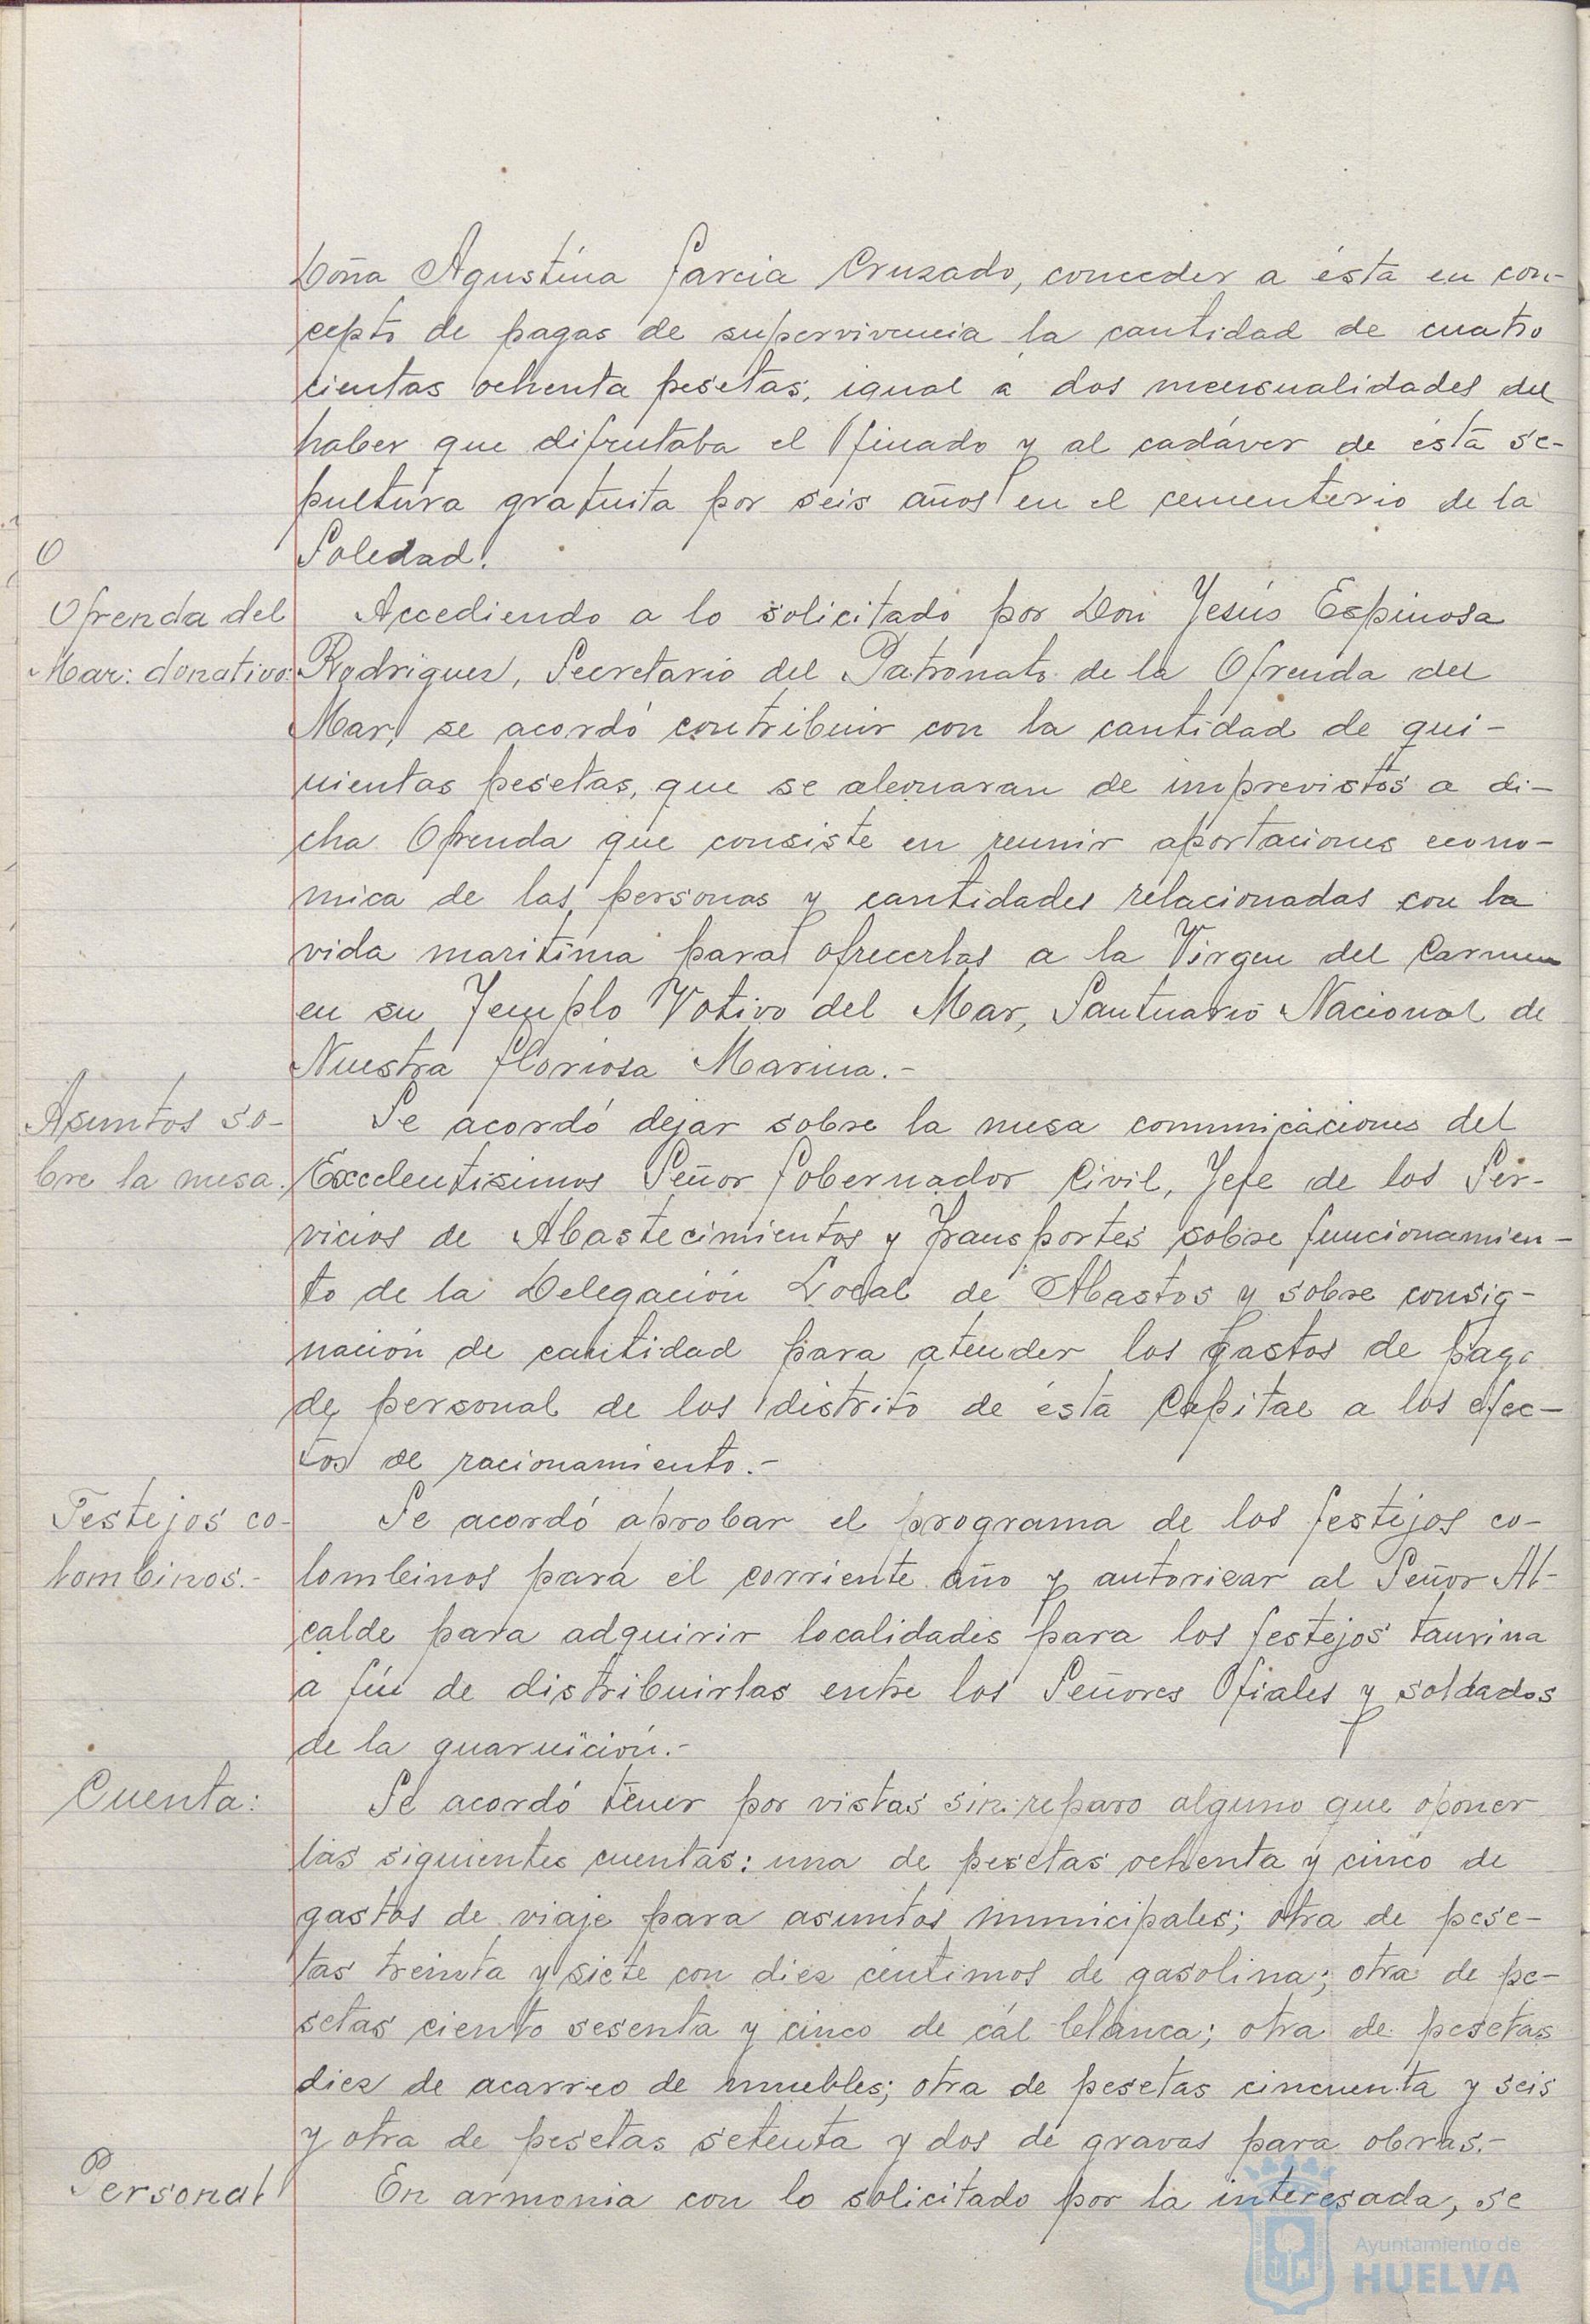 Doña Agustina Garcia Cruzado, conceder a ésta en con-
cepto de pagas de supervivencia la cantidad de cuatro
cientas ochenta pesetas, igual a dos mensualidades del
haber que difrutaba el finado y al cadáver de ésta se-
pultura gratuita por seis años en el cementerio de la
Soledad.
O
Ofrenda del
Mar: donativo:
Accediendo a lo solicitado por Don Jesús Espinosa
Rodriguez, Secretario del Patronato de la Ofrenda del
Mar, se acordó contribuir con la cantidad de qui-
nientas pesetas, que se abonaran de imprevistos a di-
cha Ofrenda que consiste en reunir aportaciones econo-
mica de las personas y cantidades relacionadas con la
vida maritima para ofrecerlas a la Virgen del Carmen
en su Templo Votivo del Mar, Santuario Nacional de
Nuestra Gloriosa Marina.-
Asuntos so-
bre la mesa.
Se acordó dejar sobre la mesa comunicaciones del
Excelentisimos Señor Gobernador Civil, Jefe de los Ser-
vicios de Abastecimientos y Transportes sobre funcionamien-
to de la Delegación Local de Abastos y sobre consig-
nación de cantidad para atender los gastos de pago
de personal de los distrito de ésta Capital a los efec-
tos de racionamiento.-
Festejos co-
lombinos.-
Se acordó aprobar el programa de los festejos co-
lombinos para el corriente año y autorizar al Señor Al-
calde para adquirir localidades para los festejos taurina
a fin de distribuirlas entre los Señores Ofiales y soldados
de la guarnición.-
Cuenta:
Se acordó tener por vistas sin reparo alguno que oponer
las siguientes cuentas: una de pesetas ochenta y cinco de
gastos de viaje para asuntos municipales; otra de pese-
tas treinta y siete con diez céntimos de gasolina; otra de pe-
setas ciento sesenta y cinco de cál blanca; otra de pesetas
diez de acarreo de muebles; otra de pesetas cincuenta y seis
y otra de pesetas setenta y dos de gravas para obras.-
Personal
En armonia con lo solicitado por la interesada, se
Ayuntamiento de
HUELVA